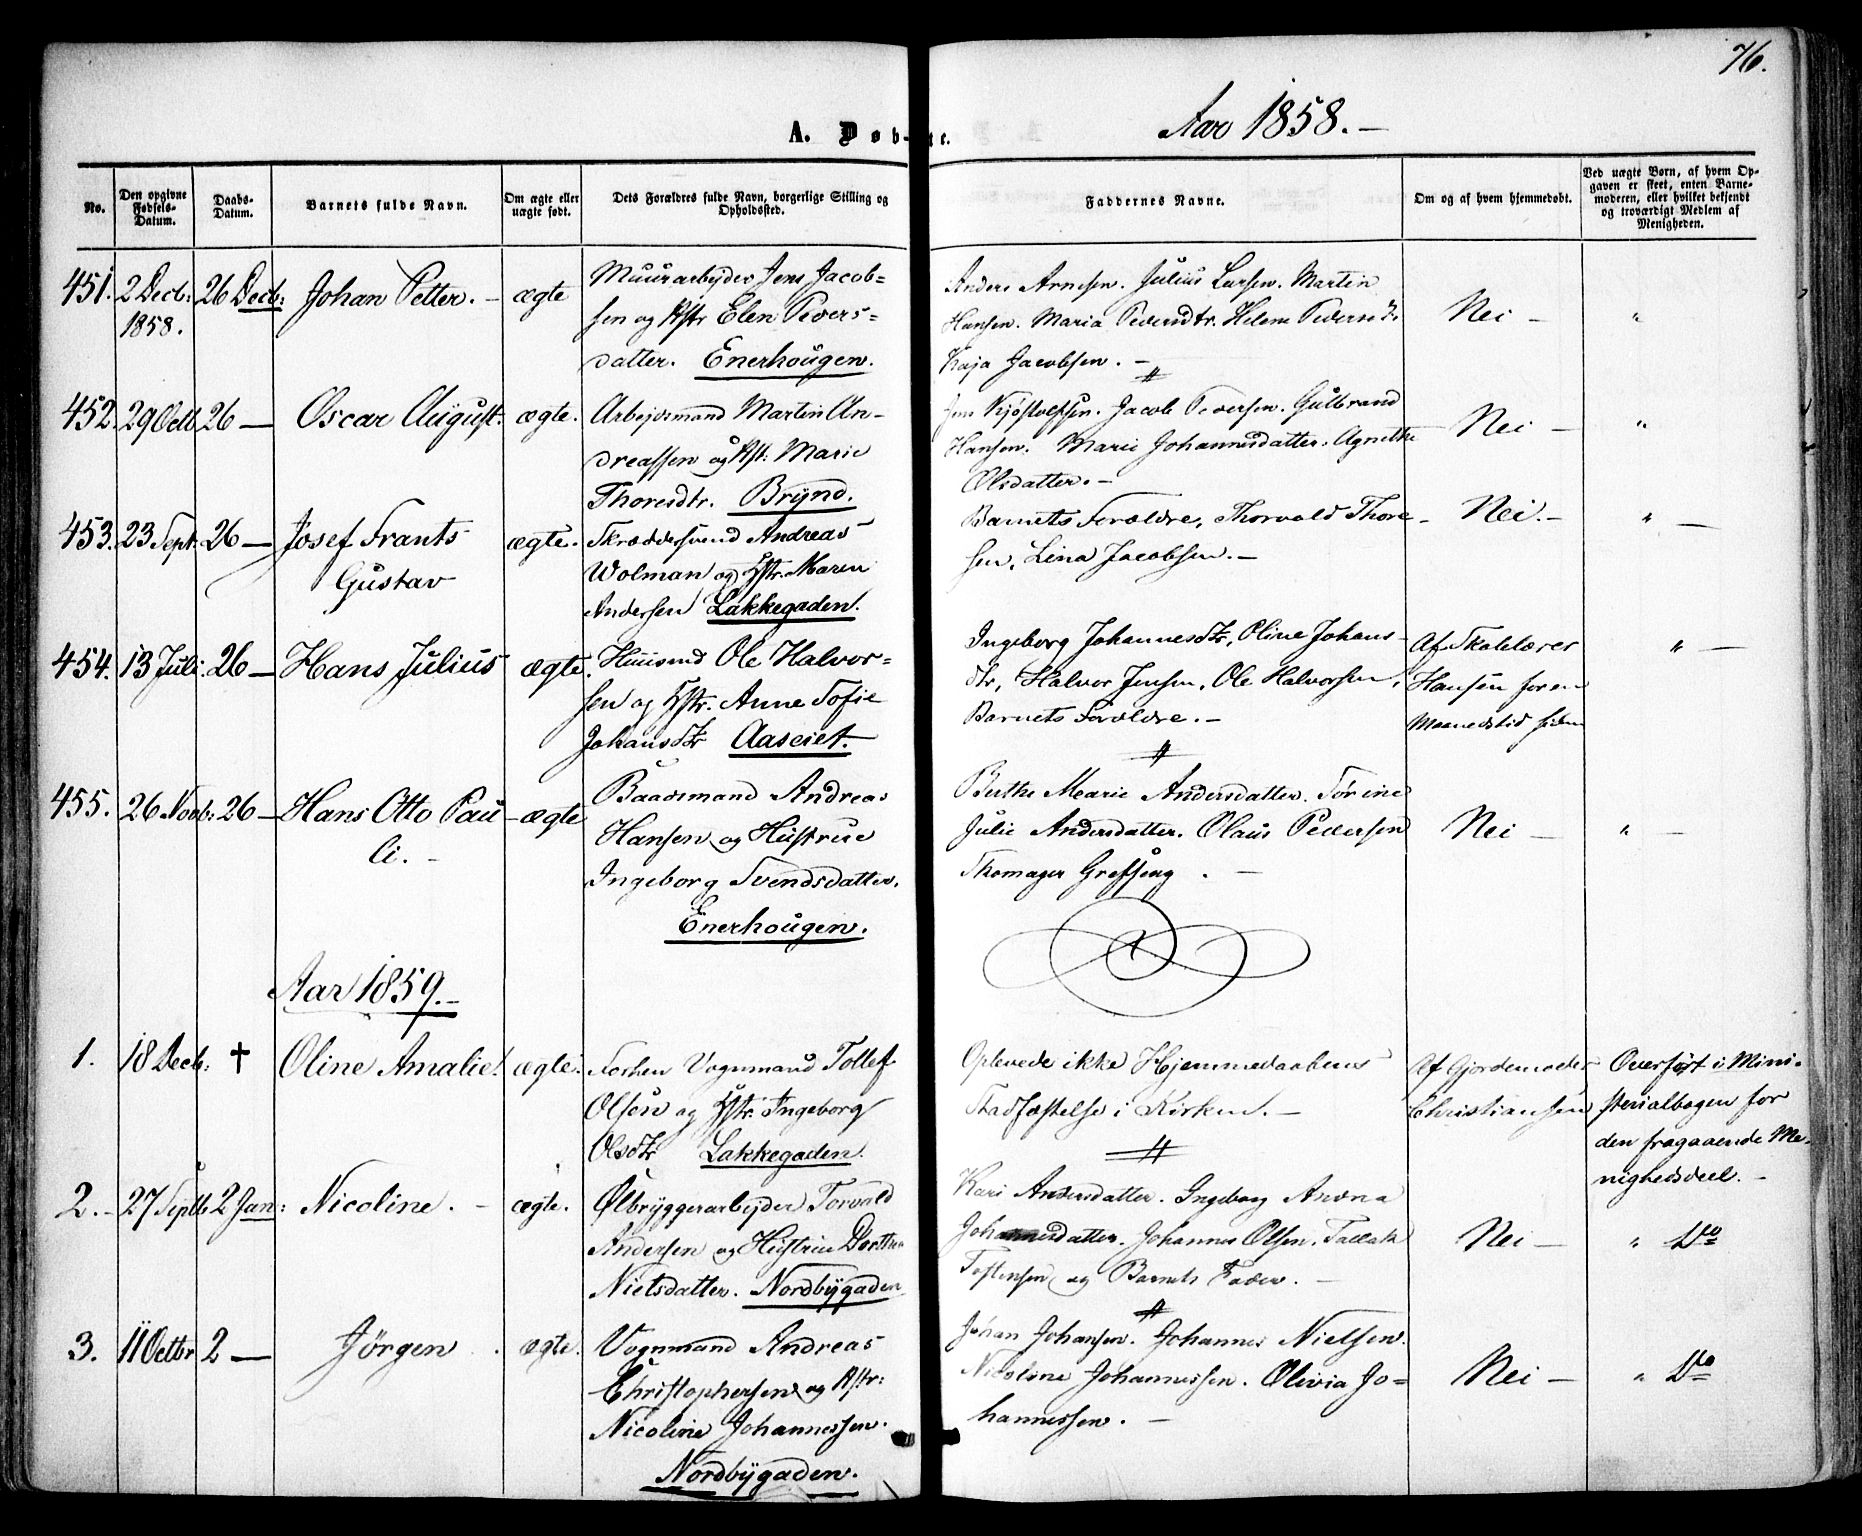 76.
A. Døbte.
Aar 1858.-
No.
Den opgivne Fødsels-Datum.
Daabs-Datum.
Barnets fulde Navn.
Om ægte eller uægte født.
Dets Forældres fulde Navn, borgerlige Stilling og Opholdssted.
Faddernes Navne.
Om og af hvem hjemmedøbt.
Ved uægte Børn, af hvem Opgaven er skeet, enten Barnemoderen, eller hvilket bekjendt og troværdigt Medlem af Menigheden.
451. 2 Decb: 1858. 26 Decb: Johan Petter.- ægte
Muurarbejder Jens Jacob=
sen og Kstr Elen Peders=
datter. Enerhougen.
Anders Arnesen. Julius Larsen. Martin
Hansen. Maria Pedersdtr. Helene Peders
Kaja Jacobsen.-
Nei - "
452. 29 Octb 26 - Oscar August. ægte.
Arbejdsmand Martin An-
dreassen og Kst: Marie
Thoresdtr. Brynd.
Jens Kjøstolfsen. Jacob Pedersen. Gulbrand
Hansen. Marie Johannesdatter. Agnethe
Olsdatter.-
Nei - "
453. 23 Sept. 26 - Josef Frants
Gustav
ægte.
Skræddersvend Andreas
Wolman og Hstr. Maren
Andersen Lakkegaden.
Barnets Forældre, Thorvald Thore-
sen, Lina Jacobsen.-
Nei.- " -
454. 13 Juli. 26 - Hans Julius ægte.
Huusmd Ole Halvor=
sen og Hstr. Anne Sofie
Johansdtr Aaseiet.-
Ingeborg Johannesdtr, Oline Johans-
dtr, Halvor Jensen, Ole Halvorsen,
Barnets Forældre.-
Af Skolelærer
Hansen for en
Maanedstid siden
" -
455. 26 Novb: 26 - Hans Otto Pau-
li.-
ægte
Baadsmand Andreas
Hansen og Hustrue
Ingeborg Svendsdatter.
Enerhougen.
Berthe Marie Andersdatter. Sørine
Julie Andersdatter. Olaus Pedersen
Thomager Grefseng.-
Nei - " -
Aar 1859.-
1. 18 Decb: † Oline Amalie. ægte.
Vognmand Tollef
Olsen og Hstr. Ingeborg
Olsdtr Lakkegaden.
Oplevede ikke Hjemmedaabens
Stadfæstelse i Kirken.-
Af Gjordemoder
Christiansen
Overført i Mini-
sterialbogen for
den fragaaende Me-
nighedsdeel.-
2.- 27 Septb 2 Jan: Nicoline.- ægte.
Ølbryggerarbejder Torvald
Andersen og Hustrue Dorthea
Nielsdatter. Nordbygaden
Kari Andersdatter. Ingeborg Andrea
Johannesdatter. Johannes Olsen. Tallak
Tostensen og Barnets Fader.-
Nei - " Do
3. 11 Octbr 2 - Jörgen. ægte.
Vognmand Andreas
Christophersen og Kstr:
Nicoline Johannessen.
Nordbygaden.
Johan Johansen. Johannes Nielsen.
Nicoline Johannessen. Olivia Jo=
hannessen.-
Nei - " Do